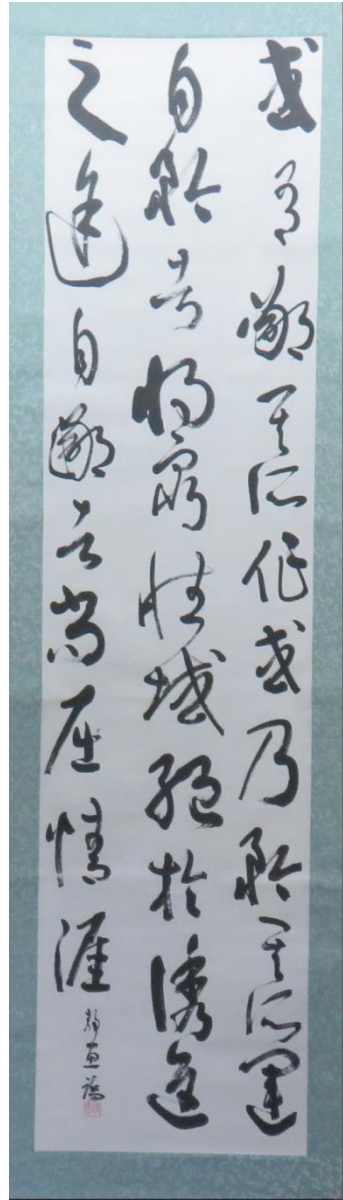 或有鄙其所作或乃矜其所運
自矜者將窮性域絕於誘進
之途自鄙者尚屈情涯